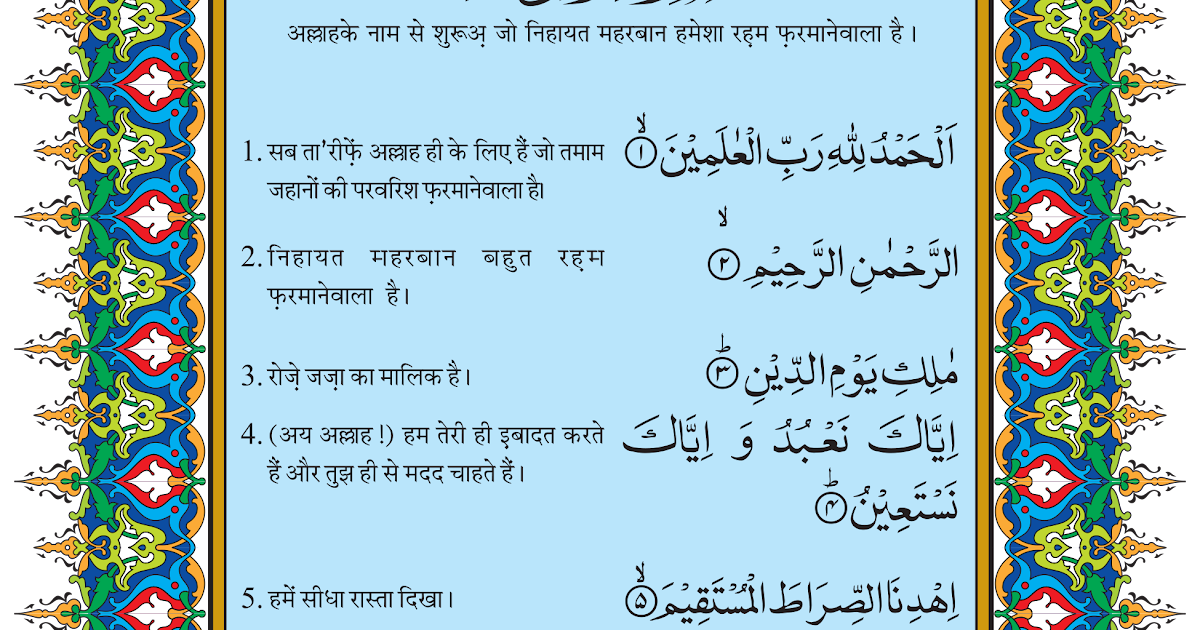 अल्लाहके नाम से शुरूअ़ जो निहायत महरबान हमेशा रह़म फ़रमानेवाला है ।
1. सब ता'रीफ़ें अल्लाह ही के लिए हैं जो तमाम
जहानों की परवरिश फ़रमानेवाला है।
اَلْحَمْدُ لِلّٰهِ رَبِّ الْعٰلَمِیْنَ ۙ﴿۱﴾
2. निहायत महरबान बहुत रह़म
फ़रमानेवाला है ।
الرَّحْمٰنِ الرَّحِیْمِ ۙ﴿۲﴾
3. रोजे़ जज़ा का मालिक है ।
مٰلِكِ یَوْمِ الدِّیْنِ ؕ﴿۳﴾
4. (अय अल्लाह !) हम तेरी ही इबादत करते
हैं और तुझ ही से मदद चाहते हैं ।
اِیَّاكَ نَعْبُدُ وَ اِیَّاكَ
نَسْتَعِیْنُ ؕ﴿۴﴾
5. हमें सीधा रास्ता दिखा ।
اِهْدِنَا الصِّرَاطَ الْمُسْتَقِیْمَ ۙ﴿۵﴾